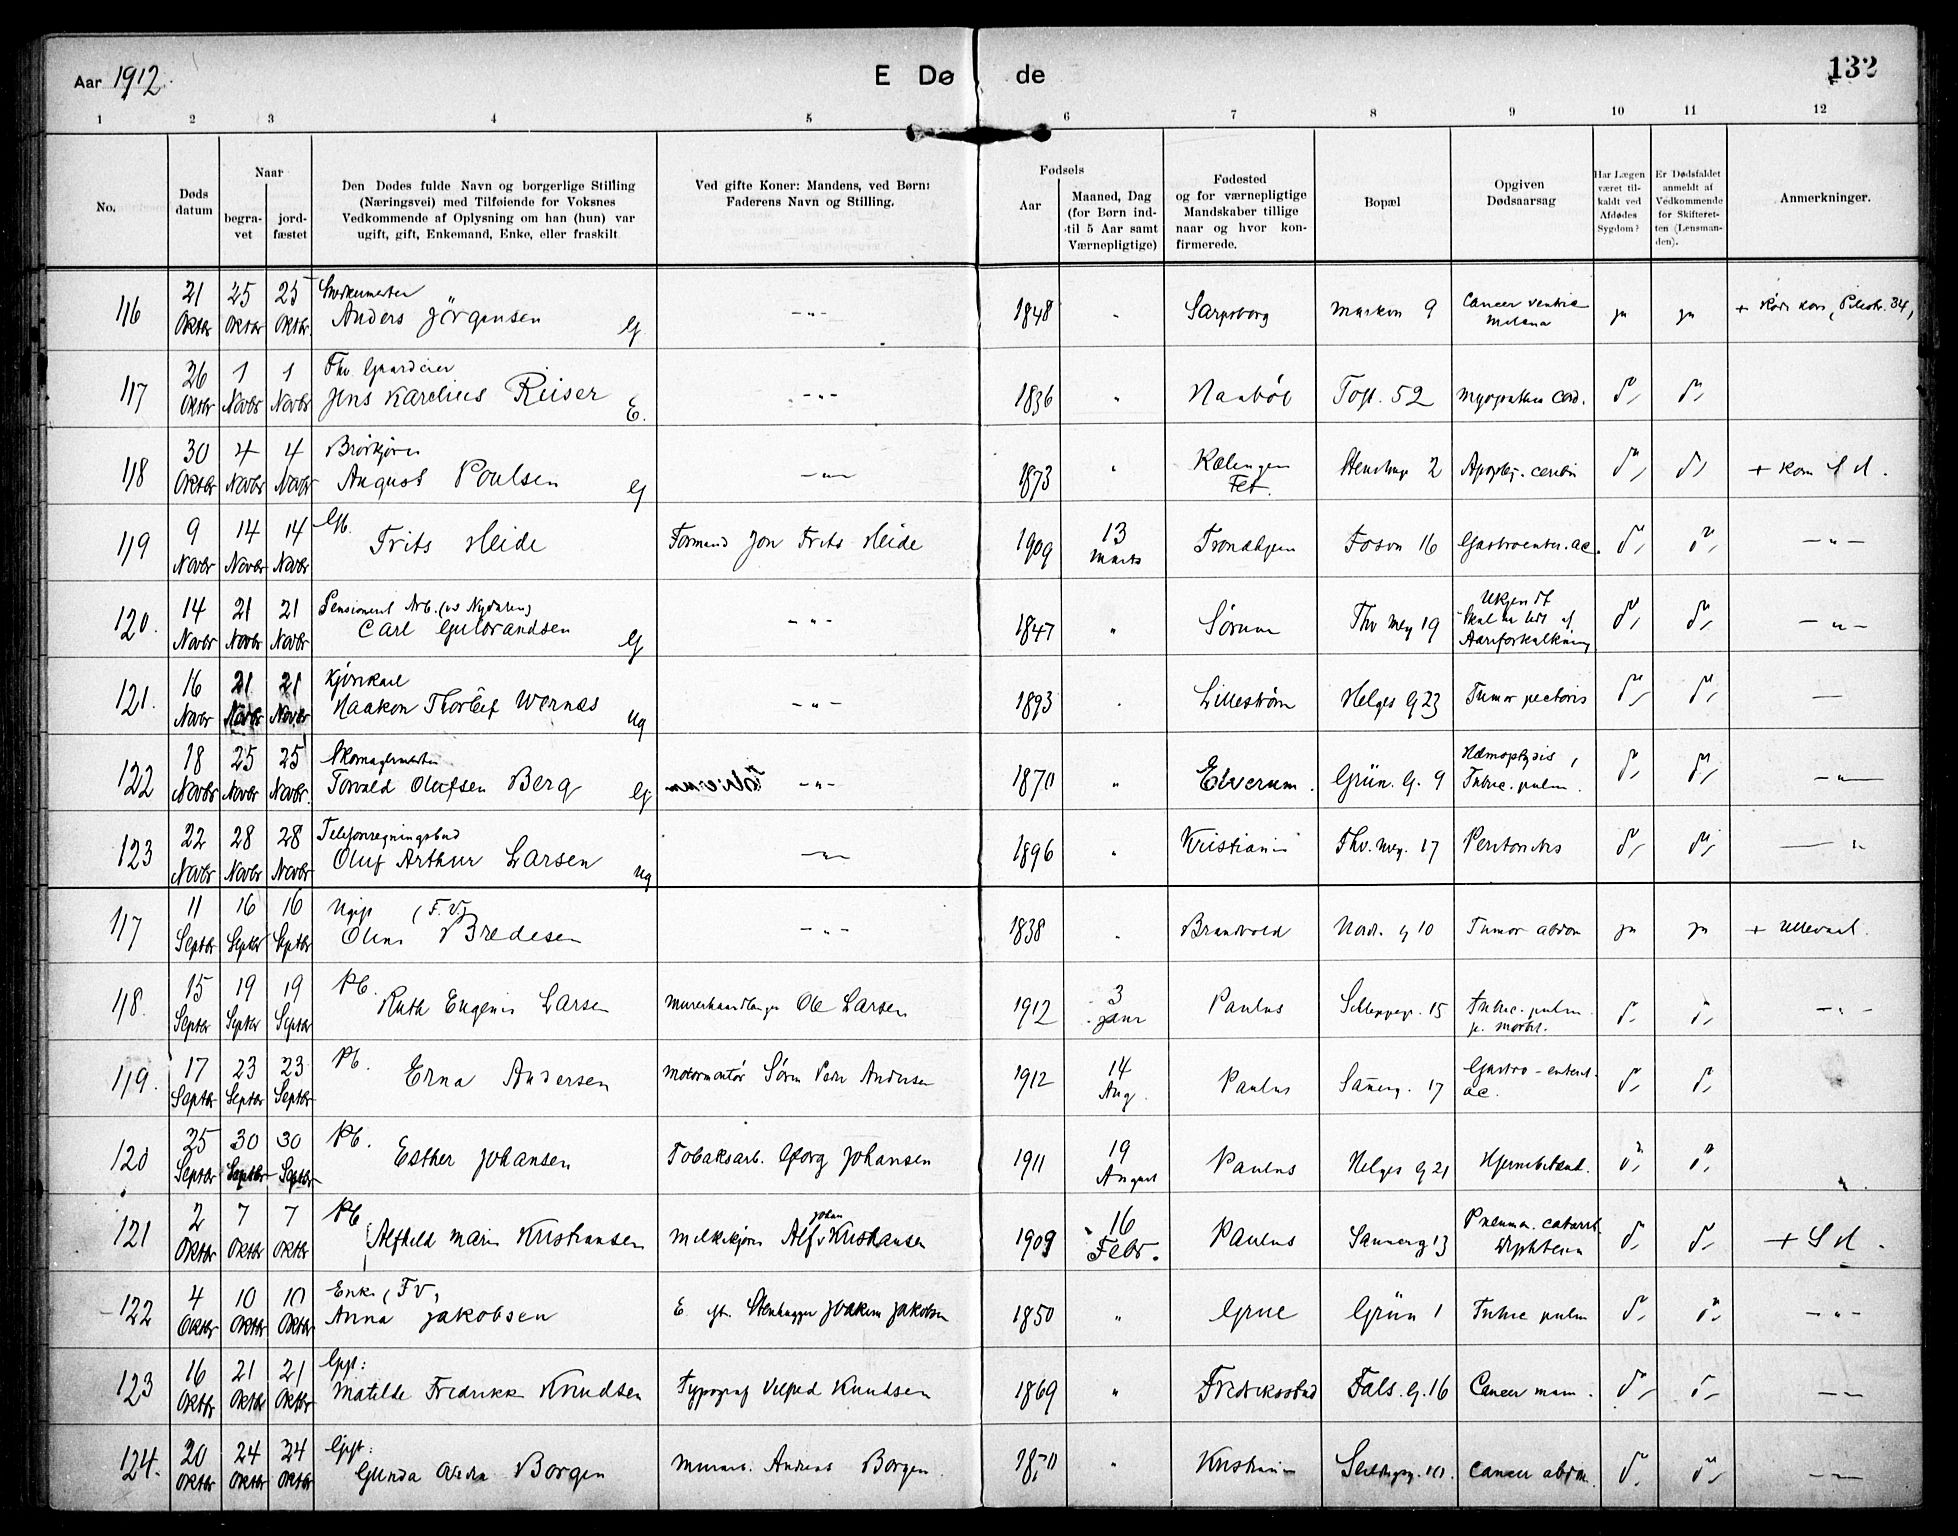 Aar 1912.
E Døde
132
1 2 3 4 5 6 7 8 9 10 11 12
No.
Døds datum
Naar
begra-vet
jord-fæstet
Den Dødes fulde Navn og borgerlige Stilling
(Næringsvei) med Tilføiende for Voksnes
Vedkommende af Oplysning om han (hun) var
ugift, gift, Enkemand, Enke, eller fraskilt
Ved gifte Koner: Mandens, ved Børn:
Faderens Navn og Stilling.
Fødsels
Aar
Maaned, Dag
(for Børn ind-
til 5 Aar samt
Værnepligtige)
Fødested
og for værnepligtige
Mandskaber tillige
naar og hvor kon-
firmerede.
Bopæl
Opgiven
Dødsaarsag
Har Lægen
været til-
kaldt ved
Afdødes
Sygdom?
Er Dødsfaldet
anmeldt af
Vedkommende
for Skifteret-
ten (Lensman-
den).
Anmerkninger.
116 21 Oktbr 25 Oktbr 25 Oktbr.
Anders Jörgensen G -"- 1848 " Sarpsborg 9 Cancer ventric Melæna ja ja
117 26 Oktbr 1 Novbr 1 Novbr Fhv. Gaardeier
Jens Karelius Riiser E. -"- 1836 " Toft. 52 Myopathia cord. d°, d°,
118 30 Oktbr 4 Novbr 4 Novbr
August Poulsen G -"- 1873 " Rælingen Fet. 2 Apoplex. cerebri d°, d°,
119 9 Novbr 14 Novbr 14 Novbr Gb.
Frits Heide Formand Jon Frits Heide 1909 13 Marts Trondhjem 16 Gastroenter. ac. d°, d°, -"-
120. 14 Novbr 21 Novbr 21 Novbr Pensioneret Arb. (vs Nydalen)
Carl Gulbrandsen G -"- 1847 " Sørum Thv mey 19 Ukjendt Skal ha lidt af Aareforkalkning d°, d°, -"-
121. 16 Novbr 21 Novbr 21 Novbr Kjørekarl
Haakon Thorleif Wernes ug -"- 1893 Lillestrøm Helges G 23 Tumor pectoris d°, d°, —
122 18 Novbr 25 Novbr 25 Novbr. Skomagermester
Torvald Olufsen Berg G -"- 1870 " Elverum. Grün. G. 9 Hæmoptysis, Tuberc. pulm. d°, d°, -"-
123 22 Novbr 28 Novbr 28 Novbr Telefonregningsbud
Oluf Arthur Larsen ug -"- 1896 " Kristiania Thv. mey. 17 Peritonitis d°, d°, — "
117 11 Septbr 16 Septbr 16 Septbr Ugift (F.V.)
Oline Bredesen -"- 1838 Brandvold Nordr. g 10 Tumor abdom ja ja + Ullevaal.
118. 15 Septbr 19 Septbr 19 Septbr Pb.
Ruth Eugenie Larsen Murerhaandlanger Ole Larsen 1912 3 Janr Paulus 15 Tuberc. pulm p. morbil. d°, d°, -"-
119. 17 Septbr 23 Septbr 23 Septbr Pb.
Erna Andersen Søren Peder Andersen 1912 14 Aug. Paulus Sannerg. 17 Gastro-enterit. ac. d°, d°,
120 25 Septbr 30 Septbr 30 Septbr Pb.
Esther Johansen Tobaksarb. Georg Johansen 1911 19 August Paulus Helges G 21 Hjernebetænd. d°, d°, "
121 2 Oktbr 7 Oktbr 7 Oktbr Pb
Alfhild Marie Kristiansen Melkekjører Alf Johan Kristiansen 1909 16 Febr. Paulus Sannerg 13 Pneumon. catarrh. Diphteria d°, d°, 
122 4 Oktbr 10 Oktbr 10 Oktbr Enke (FV)
Anna Jakobsen E. eft. Stenhugger Joakim Jakobsen 1850 " Grue Grün 1 Tuberc pulm d°, d°, -"-
123 16 Oktbr 21 Oktbr 21 Oktbr Gift:
Matilde Fredrikke Knudsen Typograf Vilfred Knudsen 1869 " Fredriksstad Fals. G. 16 Cancer mam. d°, d°, — —
124. 20 Oktbr 24 Oktbr 24 Oktbr Gift:
Gunda Borgen Murarb. Anders Borgen 1870 " Kristiania Cancer abdom. d°, d°, — —